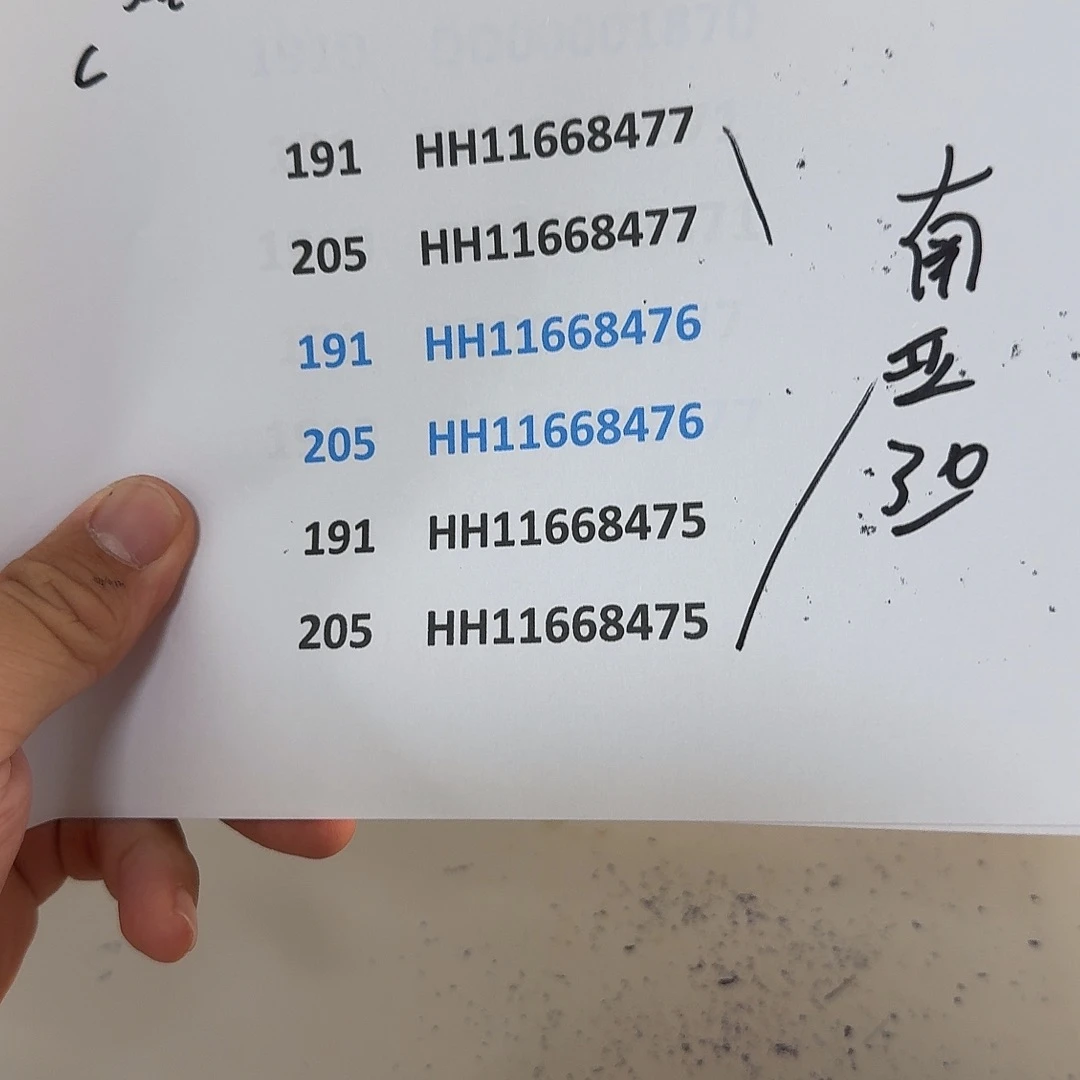 C
191 HH11668477
205 HH11668477
191 HH11668476
205 HH11668476
191 HH11668475
205 HH11668475
南
亚